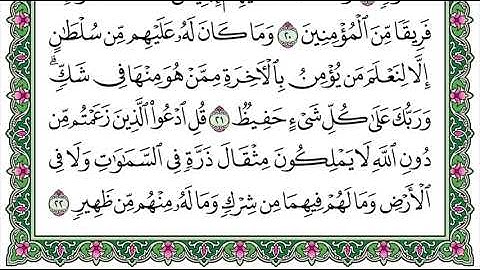 فَرِيقًا مِّنَ ٱلْمُؤْمِنِينَ ٢٠ وَمَا كَانَ لَهُۥ عَلَيْهِم مِّن سُلْطَٰنٍ
إِلَّا لِنَعْلَمَ مَن يُؤْمِنُ بِٱلْءَاخِرَةِ مِمَّنْ هُوَ مِنْهَا فِى شَكٍّۗ
وَرَبُّكَ عَلَىٰ كُلِّ شَىْءٍ حَفِيظٌ ٢١ قُلِ ٱدْعُوا۟ ٱلَّذِينَ زَعَمْتُم مِّن
دُونِ ٱللَّهِ لَا يَمْلِكُونَ مِثْقَالَ ذَرَّةٍ فِى ٱلسَّمَٰوَٰتِ وَلَا فِى
ٱلْأَرْضِ وَمَا لَهُمْ فِيهِمَا مِن شِرْكٍ وَمَا لَهُۥ مِنْهُم مِّن ظَهِيرٍ ٢٢